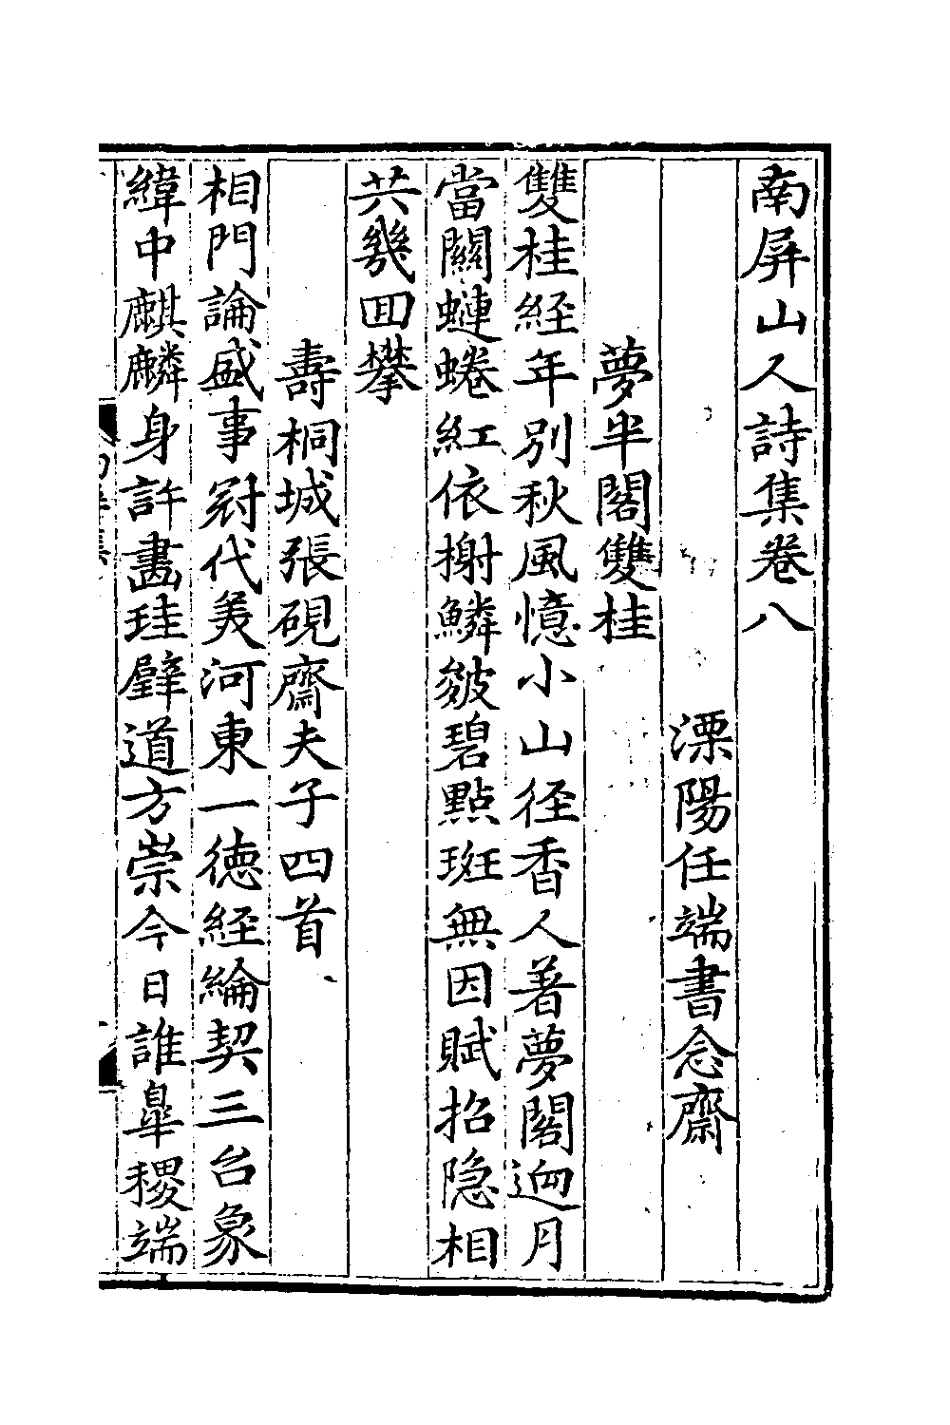 南屏山人詩集卷八
溧陽任端書念齋
夢半閣雙桂
雙桂経年別秋風憶小山径香人著夢閣逈月
當關蜷蜷紅依榭鱗皴碧點斑無因賦招隐相
共幾囬攀
壽桐城張硯齋夫子四首
相門論盛事冠代美河東一德経綸契三台象
緯中麒麟身許畵珪璧道方崇今日誰臯稷端